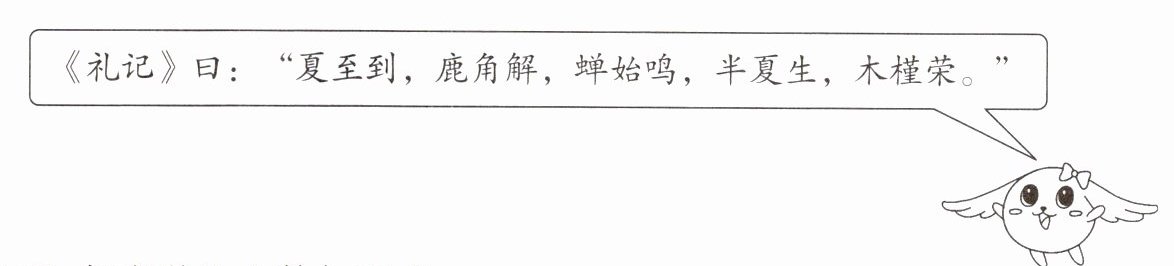 《礼记》曰：“夏至到，鹿角解，蝉始鸣，半夏生，木槿荣。”